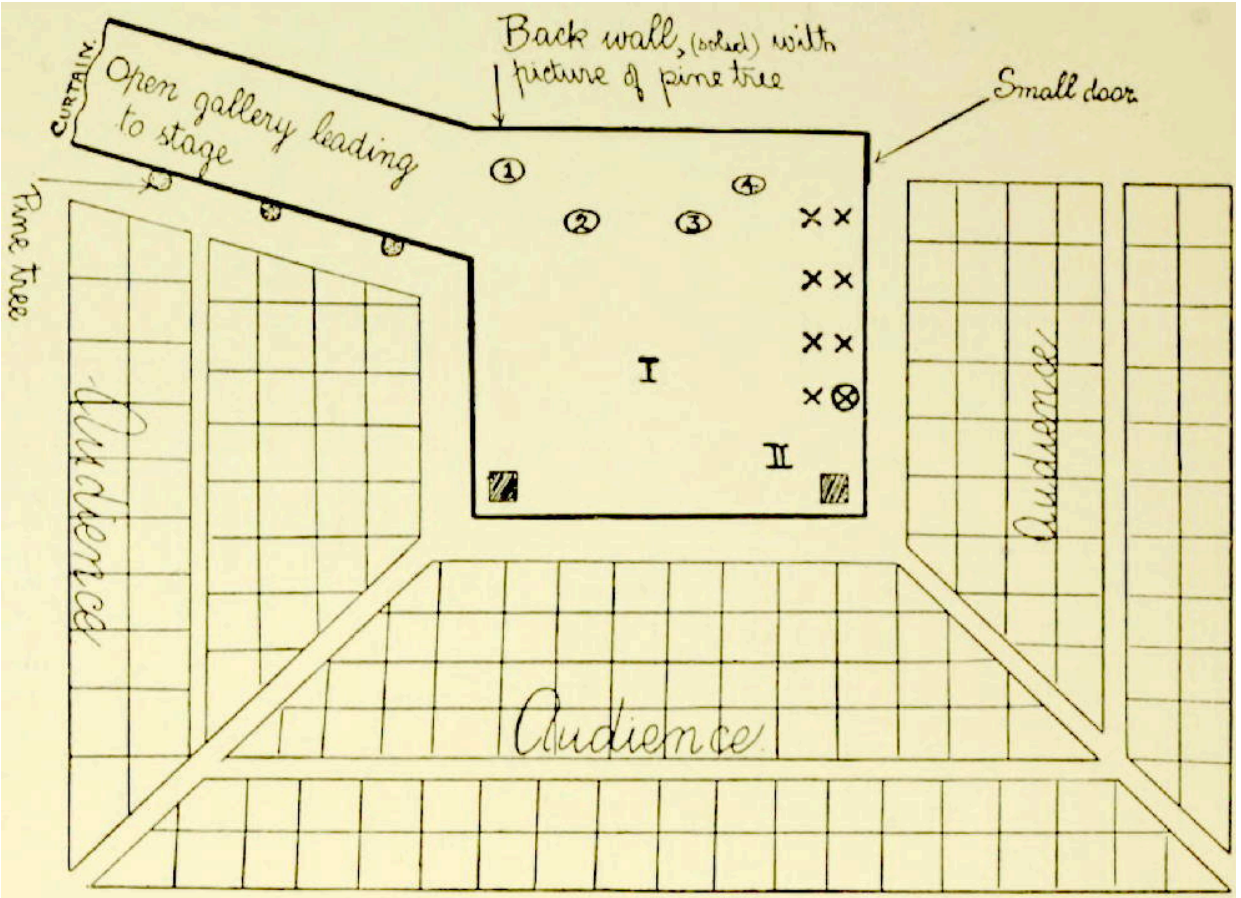 CURTAIN.
Open gallery leading
to stage
Back wall, (solid) with
picture of pine tree
Small door
Pine tree
1
4
2
3
X X
X X
X X
I
X X
II
Audience
Audience
Audience